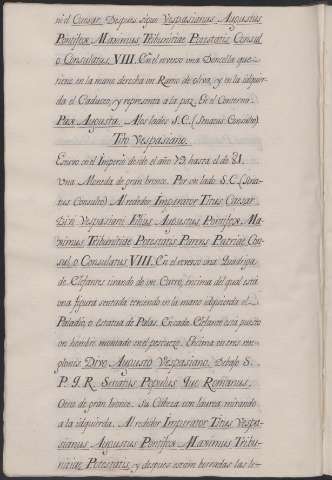 ni el Caesar. Despues sigue Vespasianus Augustus
Pontifex Maximus Tribunitiae Potestatis Consul
o Consulatus VIII. En el reverso una Doncella que
tiene en la mano derecha un Ramo de oliva, y en la izquier-
da el Caduceo, y representa a la paz. En el Contorno
Pax Augusta. A los lados S. C. (Senatus Consulto)
Tito Vespasiano.
Entro en el Imperio desde el año 79 hasta el de 81.
Una Moneda de gran bronce. Por un lado S. C. (Sena-
tus Consulto) Al rededor Imperator Titus Caesar
Divi Vespasiani Filius Augustus Pontifex Ma-
ximus Tribunitiae Potestatis Parens Patriae Con-
sul o Consulatus VIII. En el reverso una Quadriga
de Elefantes tirando de un Carro, encima del qual está
una figura sentada teniendo en la mano izquierda el
Paladio, o estatua de Palas. En cada Elefante está puesto
un hombre montado en el pescuezo. Encima en tres ren-
glones Divo Augusto Vespasiano. Debajo S.
P. Q. R. Senatus Populus Que Romanus.
Otra de gran bronce. Su Cabeza con laurea mirando
a la izquierda. Al rededor Imperator Titus Vespa-
sianus Augustus Pontifex Maximus Tribu-
nitiae Potestatis y despues estan borradas las le-